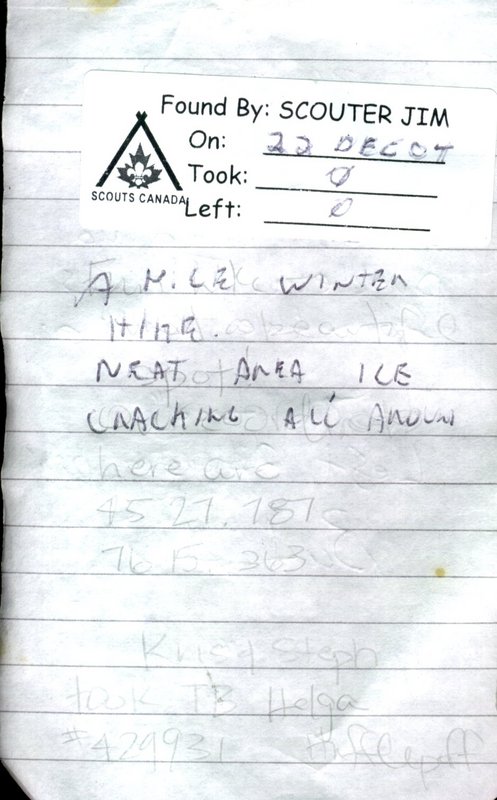 Found By: SCOUTER JIM
On: 22 DEC 07
Took: 0
SCOUTS CANADA
Left: 0
A NICE WINTER
HIKE.
NEAT AREA ICE
CRACKING ALL AROUN
here are
45 27.787
76 15.363
Kris & Steph
took TB Helga
#429931 Hufflepuff